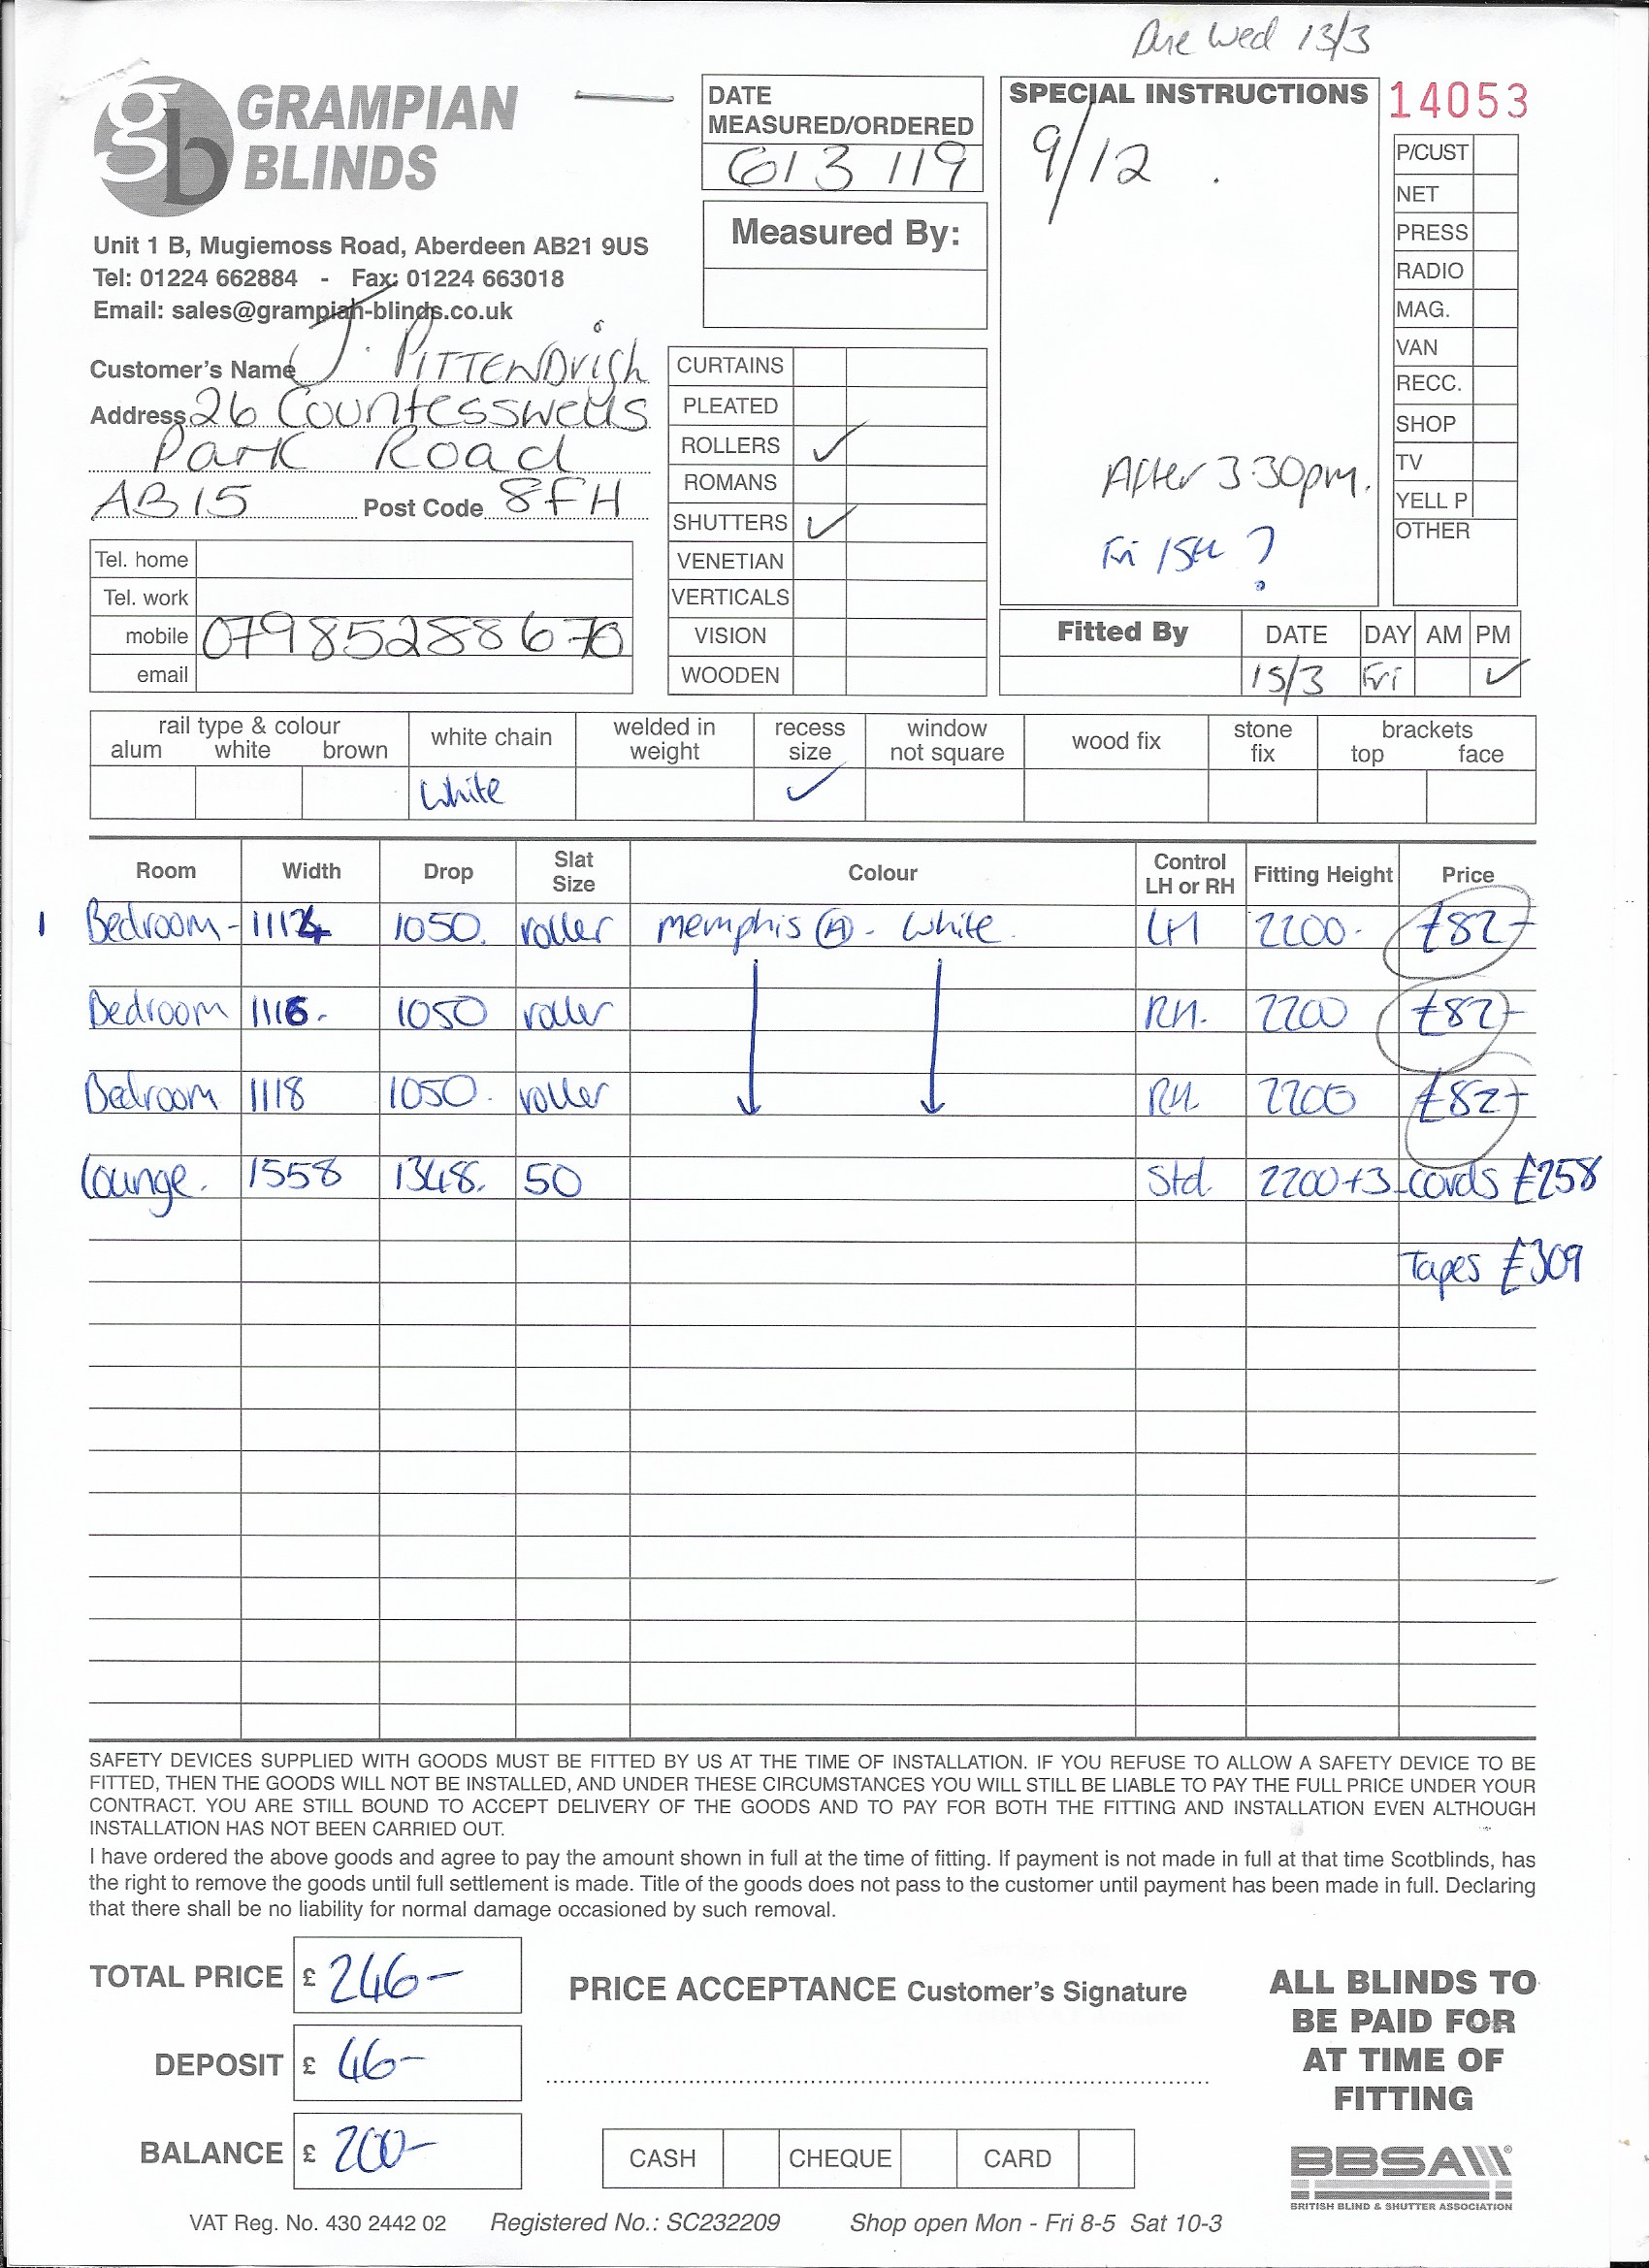 Due Wed 13/3
GRAMPIAN
BLINDS
Unit 1 B, Mugiemoss Road, Aberdeen AB21 9US
Tel: 01224 662884 - Fax: 01224 663018
Email: sales@grampian-blinds.co.uk
Customer's Name J. PITTENDrigh
Address 26 Countesswells
Park Road
AB15 Post Code 8FH
Tel. home
Tel. work
mobile 07985288670
email
DATE
MEASURED/ORDERED
6/3/19
Measured By:
CURTAINS
PLEATED
ROLLERS ✓
ROMANS
SHUTTERS ✓
VENETIAN
VERTICALS
VISION
WOODEN
SPECIAL INSTRUCTIONS
9/12
After 3.30pm.
Fri 15th ?
14053
P/CUST
NET
PRESS
RADIO
MAG.
VAN
RECC.
SHOP
TV
YELL P
OTHER
Fitted By DATE DAY AM PM
15/3 Fri ✓
rail type & colour
alum white brown
white chain
welded in
weight
recess
size
window
not square
wood fix
stone
fix
brackets
top face
White ✓
Room Width Drop Slat Size Colour Control LH or RH Fitting Height Price
1 Bedroom - 1114 1050. roller memphis (A) - White. LH 2200. £82-
Bedroom 1116. 1050 roller RH. 2200 £82-
Bedroom 1118 1050. roller RH. 2200 £82-
Lounge. 1558 1348. 50 Std. 2200+3 cords £258
Tapes £309
SAFETY DEVICES SUPPLIED WITH GOODS MUST BE FITTED BY US AT THE TIME OF INSTALLATION. IF YOU REFUSE TO ALLOW A SAFETY DEVICE TO BE
FITTED, THEN THE GOODS WILL NOT BE INSTALLED, AND UNDER THESE CIRCUMSTANCES YOU WILL STILL BE LIABLE TO PAY THE FULL PRICE UNDER YOUR
CONTRACT. YOU ARE STILL BOUND TO ACCEPT DELIVERY OF THE GOODS AND TO PAY FOR BOTH THE FITTING AND INSTALLATION EVEN ALTHOUGH
INSTALLATION HAS NOT BEEN CARRIED OUT.
I have ordered the above goods and agree to pay the amount shown in full at the time of fitting. If payment is not made in full at that time Scotblinds, has
the right to remove the goods until full settlement is made. Title of the goods does not pass to the customer until payment has been made in full. Declaring
that there shall be no liability for normal damage occasioned by such removal.
TOTAL PRICE £ 246-
DEPOSIT £ 46-
BALANCE £ 200-
PRICE ACCEPTANCE Customer's Signature
CASH CHEQUE CARD
ALL BLINDS TO
BE PAID FOR
AT TIME OF
FITTING
BBSA
BRITISH BLIND & SHUTTER ASSOCIATION
VAT Reg. No. 430 2442 02 Registered No.: SC232209 Shop open Mon - Fri 8-5 Sat 10-3